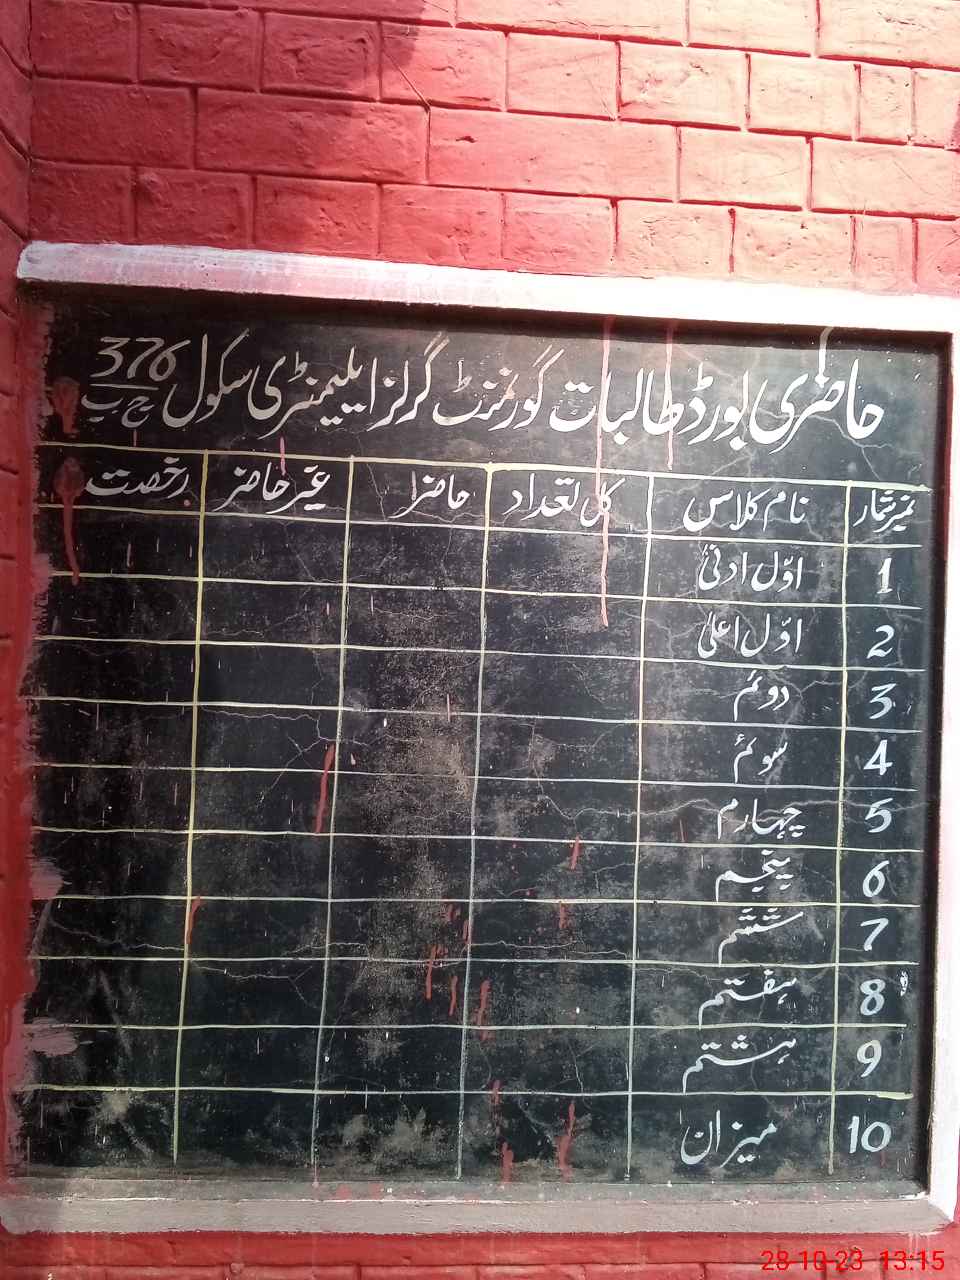 حاضری بورڈ طالبات گورنمنٹ گرلز ایلیمنٹری سکول 376 ج ب
نمبر شمار نام کلاس کل تعداد حاضر غیر حاضر رخصت
1 اوّل ادنیٰ
2 اوّل اعلیٰ
3 دوئم
4 سوئم
5 چہارم
6 پنجم
7 ششم
8 ہفتم
9 ہشتم
10 میزان
28-10-23 13:15